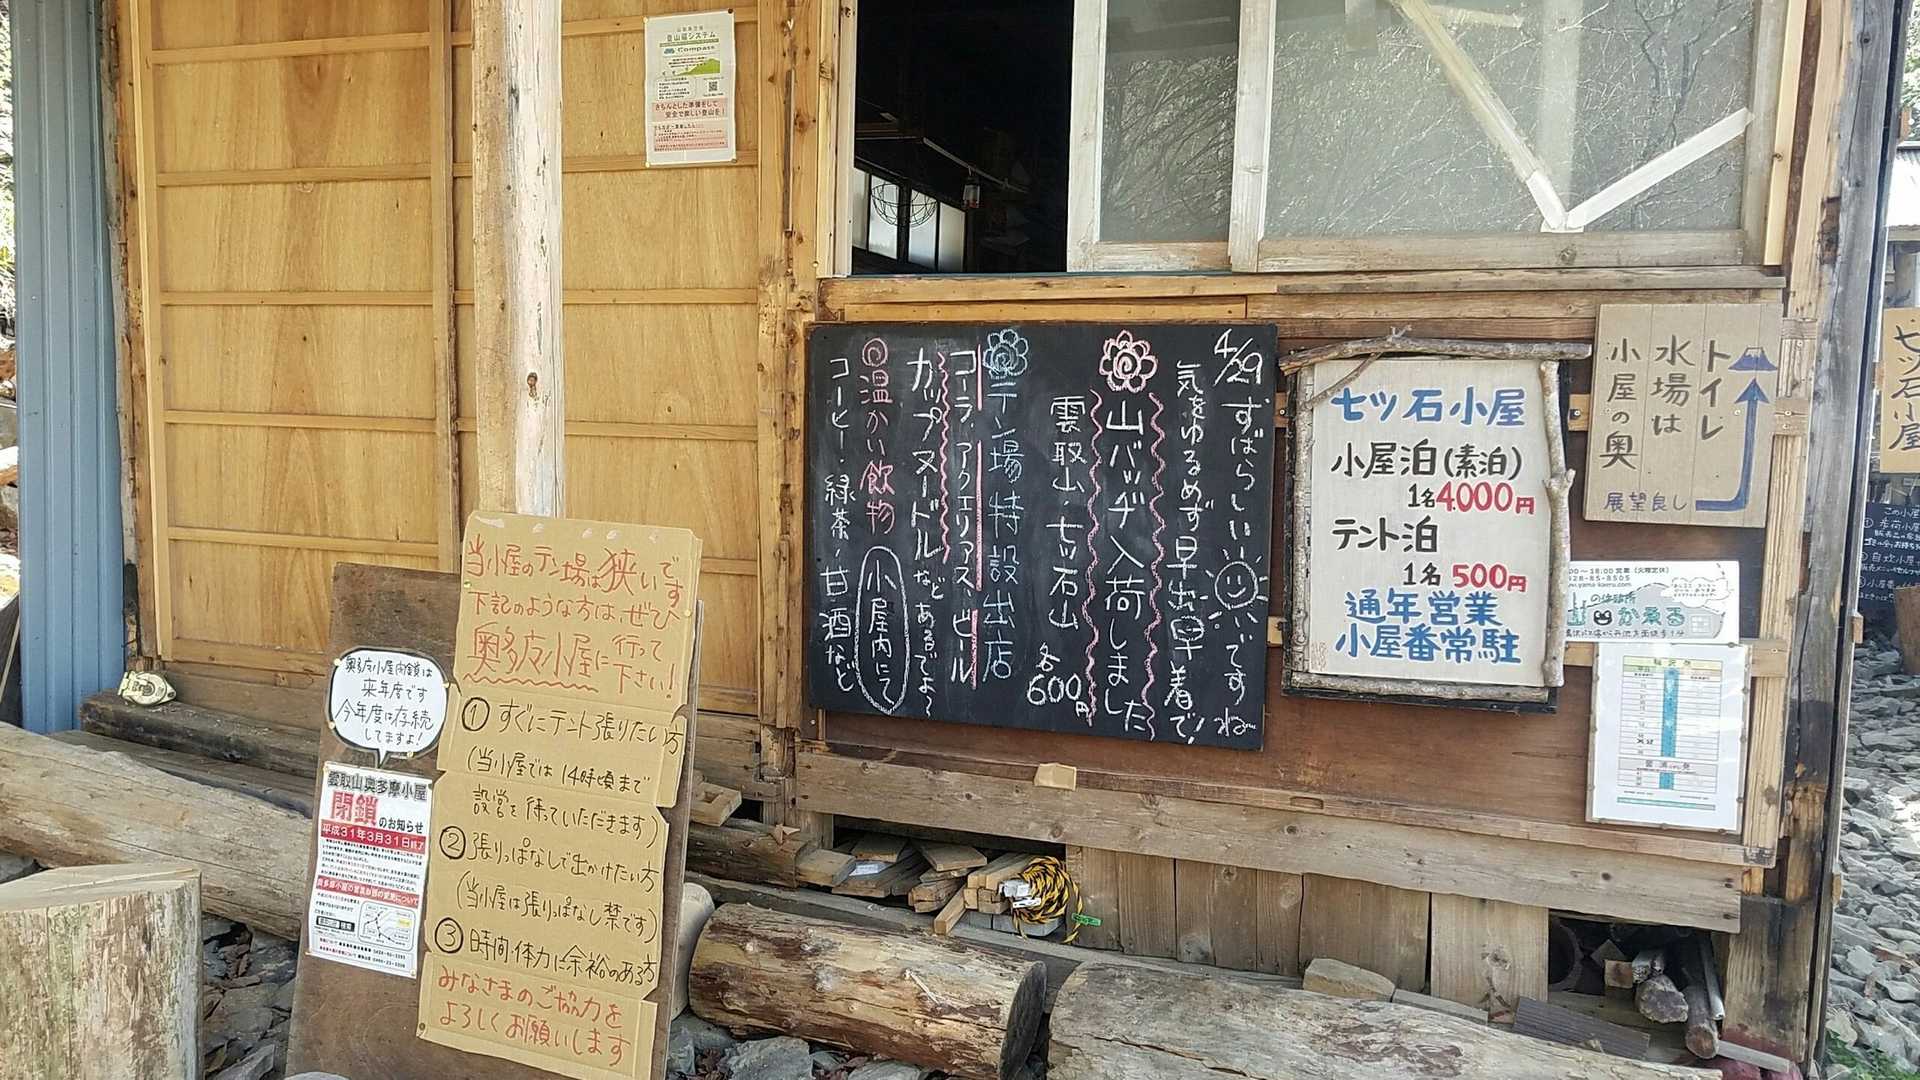 登山届システム
Compass
きちんとした準備をして
安全で楽しい登山を!
4/29 すばらしい です ね
気をゆるめず早出早着で!
山バッヂ入荷しました
雲取山・七ッ石山
各600円
テン場特設出店
コーラ・アクエリアス・ビール
カップヌードルなどあるでよ〜
温かい飲物
小屋内にて
コーヒー・緑茶・甘酒など
七ツ石小屋
小屋泊(素泊)
1名4.000円
テント泊
1名500円
通年営業
小屋番常駐
トイレ
水場は
小屋の奥
展望良し
かゑる
当小屋のテン場は狭いです
下記のような方は、ぜひ
奥多广小屋に行って
下さい!
① すぐにテント張りたい方
(当小屋では14時頃まで
設営を待っていただきます)
② 張りっぱなしで出かけたい方
(当小屋は張りっぱなし禁です)
③ 時間・体力に余裕のある方
みなさまのご協力を
よろしくお願いします
奥多广小屋閉鎖は
来年度です
今年度は存続
してますよ!
雲取山奥多摩小屋
閉鎖のお知らせ
平成31年3月31日終了
七ツ石小屋